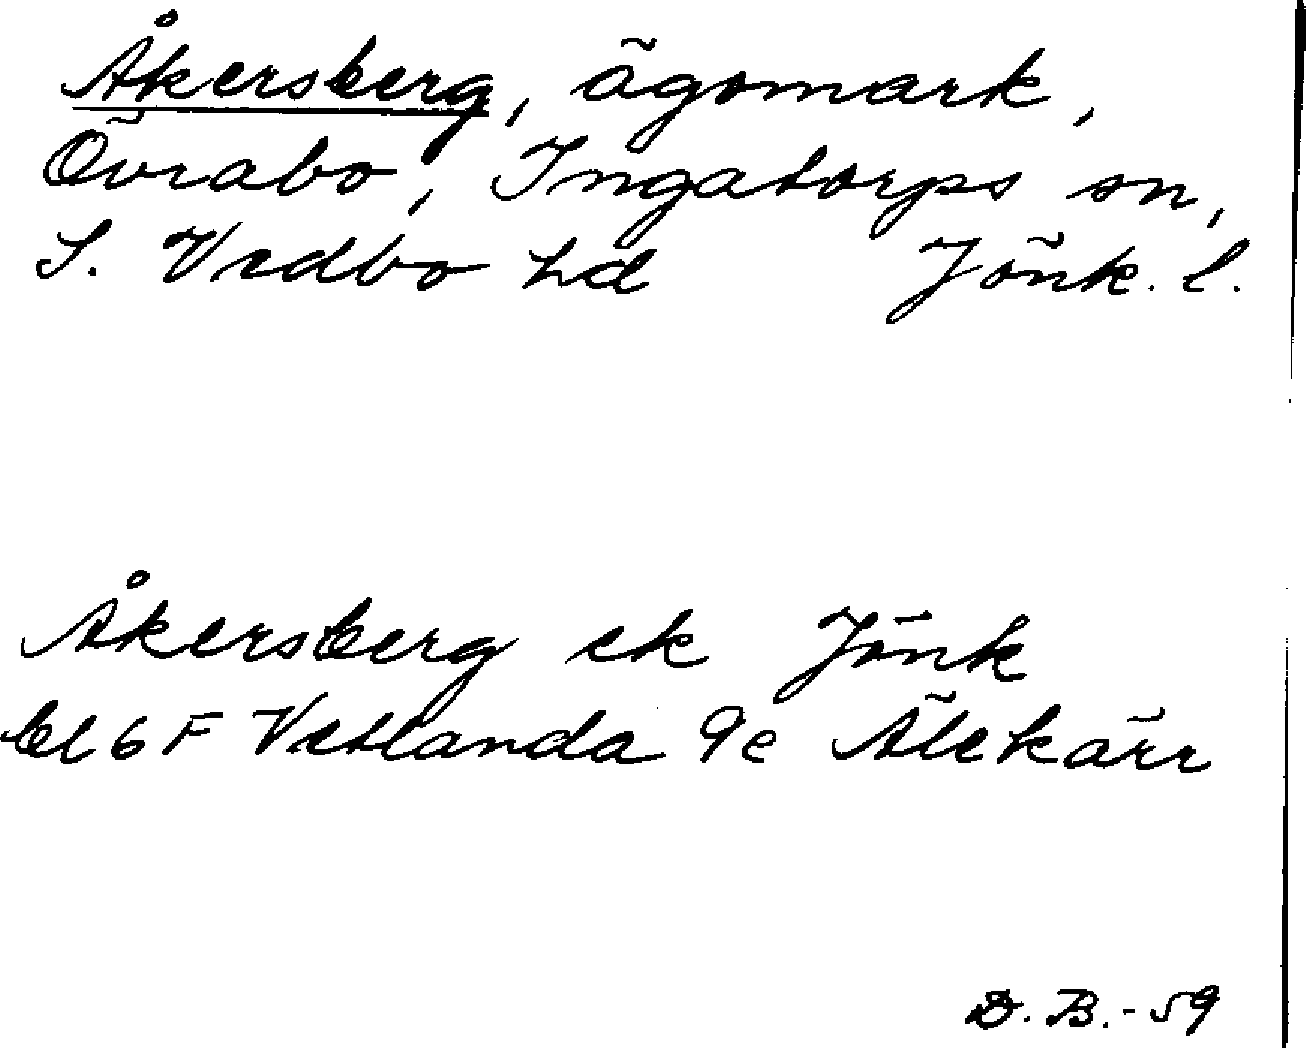 Åkersberg, ägomark,
Övrabo, Ingatorps sn,
S. Vedbo hd Jönk. l.
Åkersberg ek Jönk
bl 6 F Vetlanda 9e Älekärr
D. B. - 59